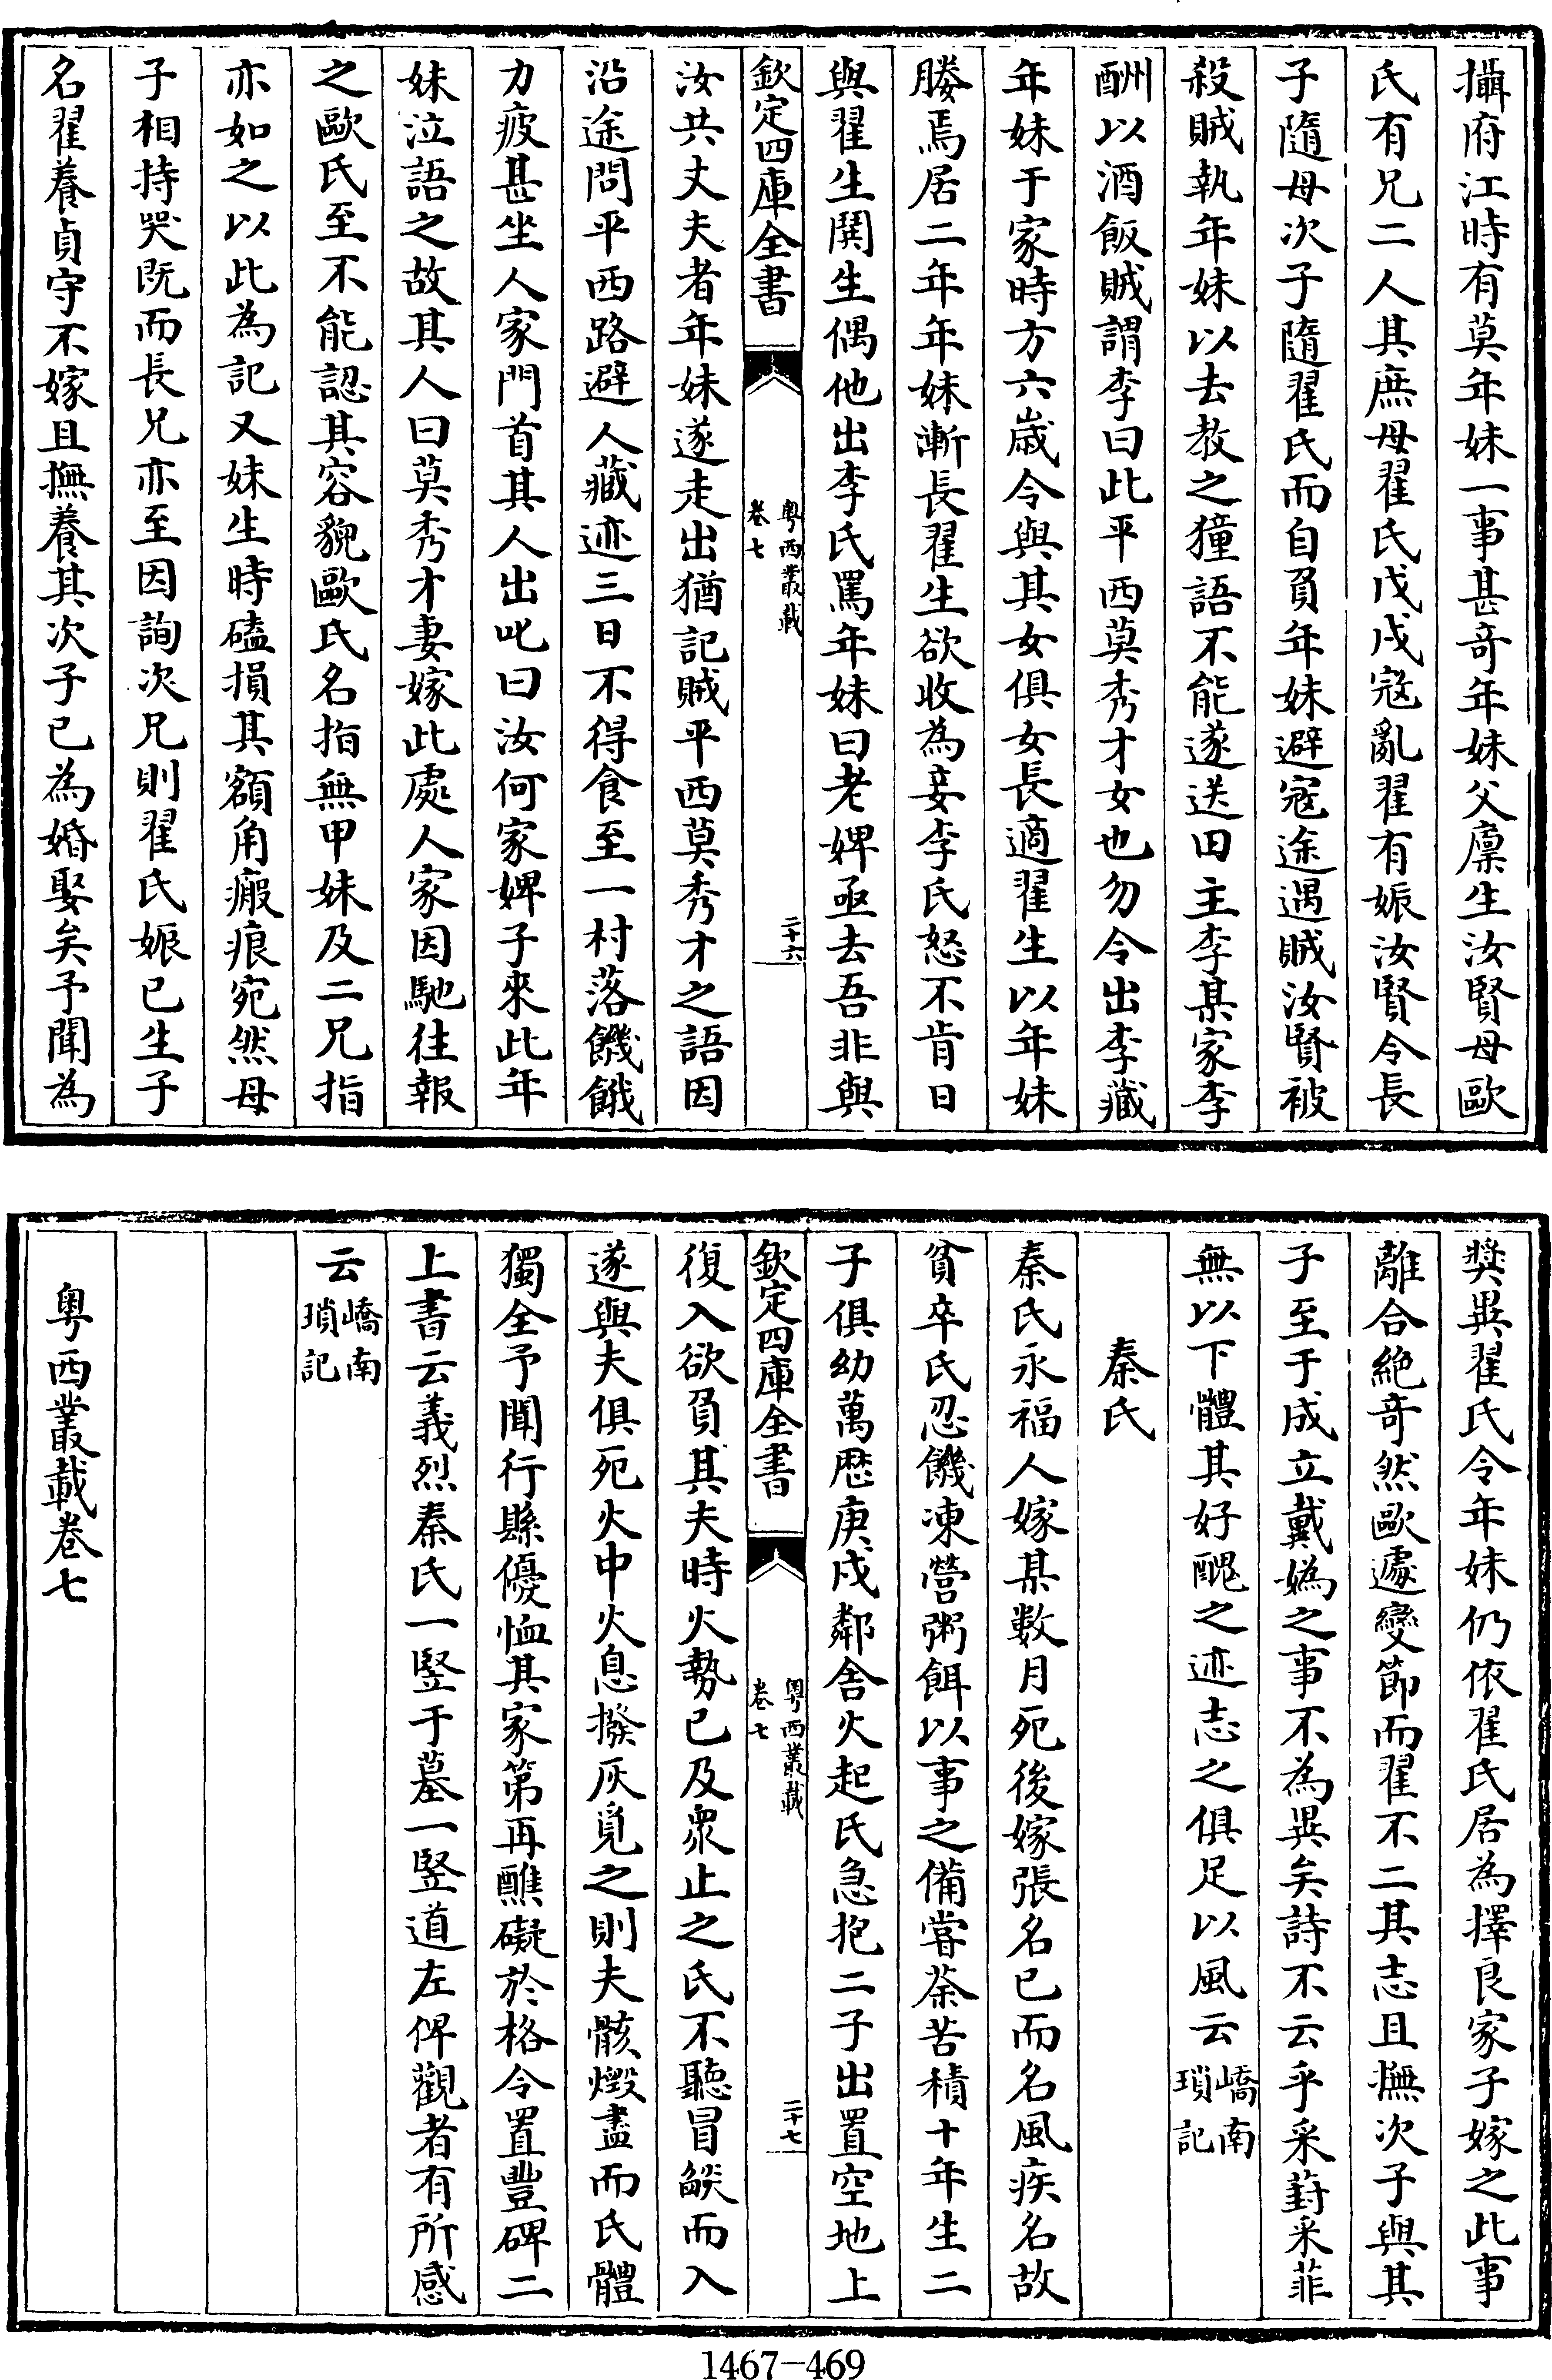 攝府江時有莫年妹一事甚竒年妹父廩生汝賢母歐
氏有兄二人其庶母翟氏戊戌冦亂翟有娠汝賢令長
子隨母次子隨翟氏而自負年妹避冦途遇賊汝賢被
殺賊執年妹以去教之獞語不能遂送田主李某家李
酬以酒飯賊謂李曰此平西莫秀才女也勿令出李藏
年妹于家時方六歲令與其女俱女長適翟生以年妹
媵焉居二年年妹漸長翟生欲收為妾李氏怒不肯日
與翟生鬨生偶他出李氏罵年妹曰老婢亟去吾非與
欽定四庫全書
粤西叢載
卷七
二十六
汝共丈夫者年妹遂走出猶記賊平西莫秀才之語因
沿途問平西路避人藏迹三日不得食至一村落饑餓
力疲甚坐人家門首其人出叱曰汝何家婢子來此年
妹泣語之故其人曰莫秀才妻嫁此處人家因馳往報
之歐氏至不能認其容貌歐氏名指無甲妹及二兄指
亦如之以此為記又妹生時磕損其額角瘢痕宛然母
子相持哭既而長兄亦至因詢次兄則翟氏娠已生子
名翟養貞守不嫁且撫養其次子已為婚娶矣予聞為
奬異翟氏令年妹仍依翟氏居為擇良家子嫁之此事
離合絶竒然歐遽變節而翟不二其志且撫次子與其
子至于成立戴媯之事不為異矣詩不云乎采葑采菲
無以下體其好醜之迹志之俱足以風云嶠南瑣記
秦氏
秦氏永福人嫁某數月死後嫁張名已而名風疾名故
貧卒氏忍饑凍營粥餌以事之備嘗荼苦積十年生二
子俱幼萬厯庚戌鄰舍火起氏急抱二子出置空地上
欽定四庫全書
粤西叢載
卷七
二十七
復入欲負其夫時火勢已及衆止之氏不聽冒燄而入
遂與夫俱死火中火息撥灰覓之則夫骸燬盡而氏體
獨全予聞行縣優恤其家第再醮礙於格令置豐碑二
上書云義烈秦氏一竪于墓一竪道左俾觀者有所感
云嶠南瑣記
粤西叢載卷七
1467-469